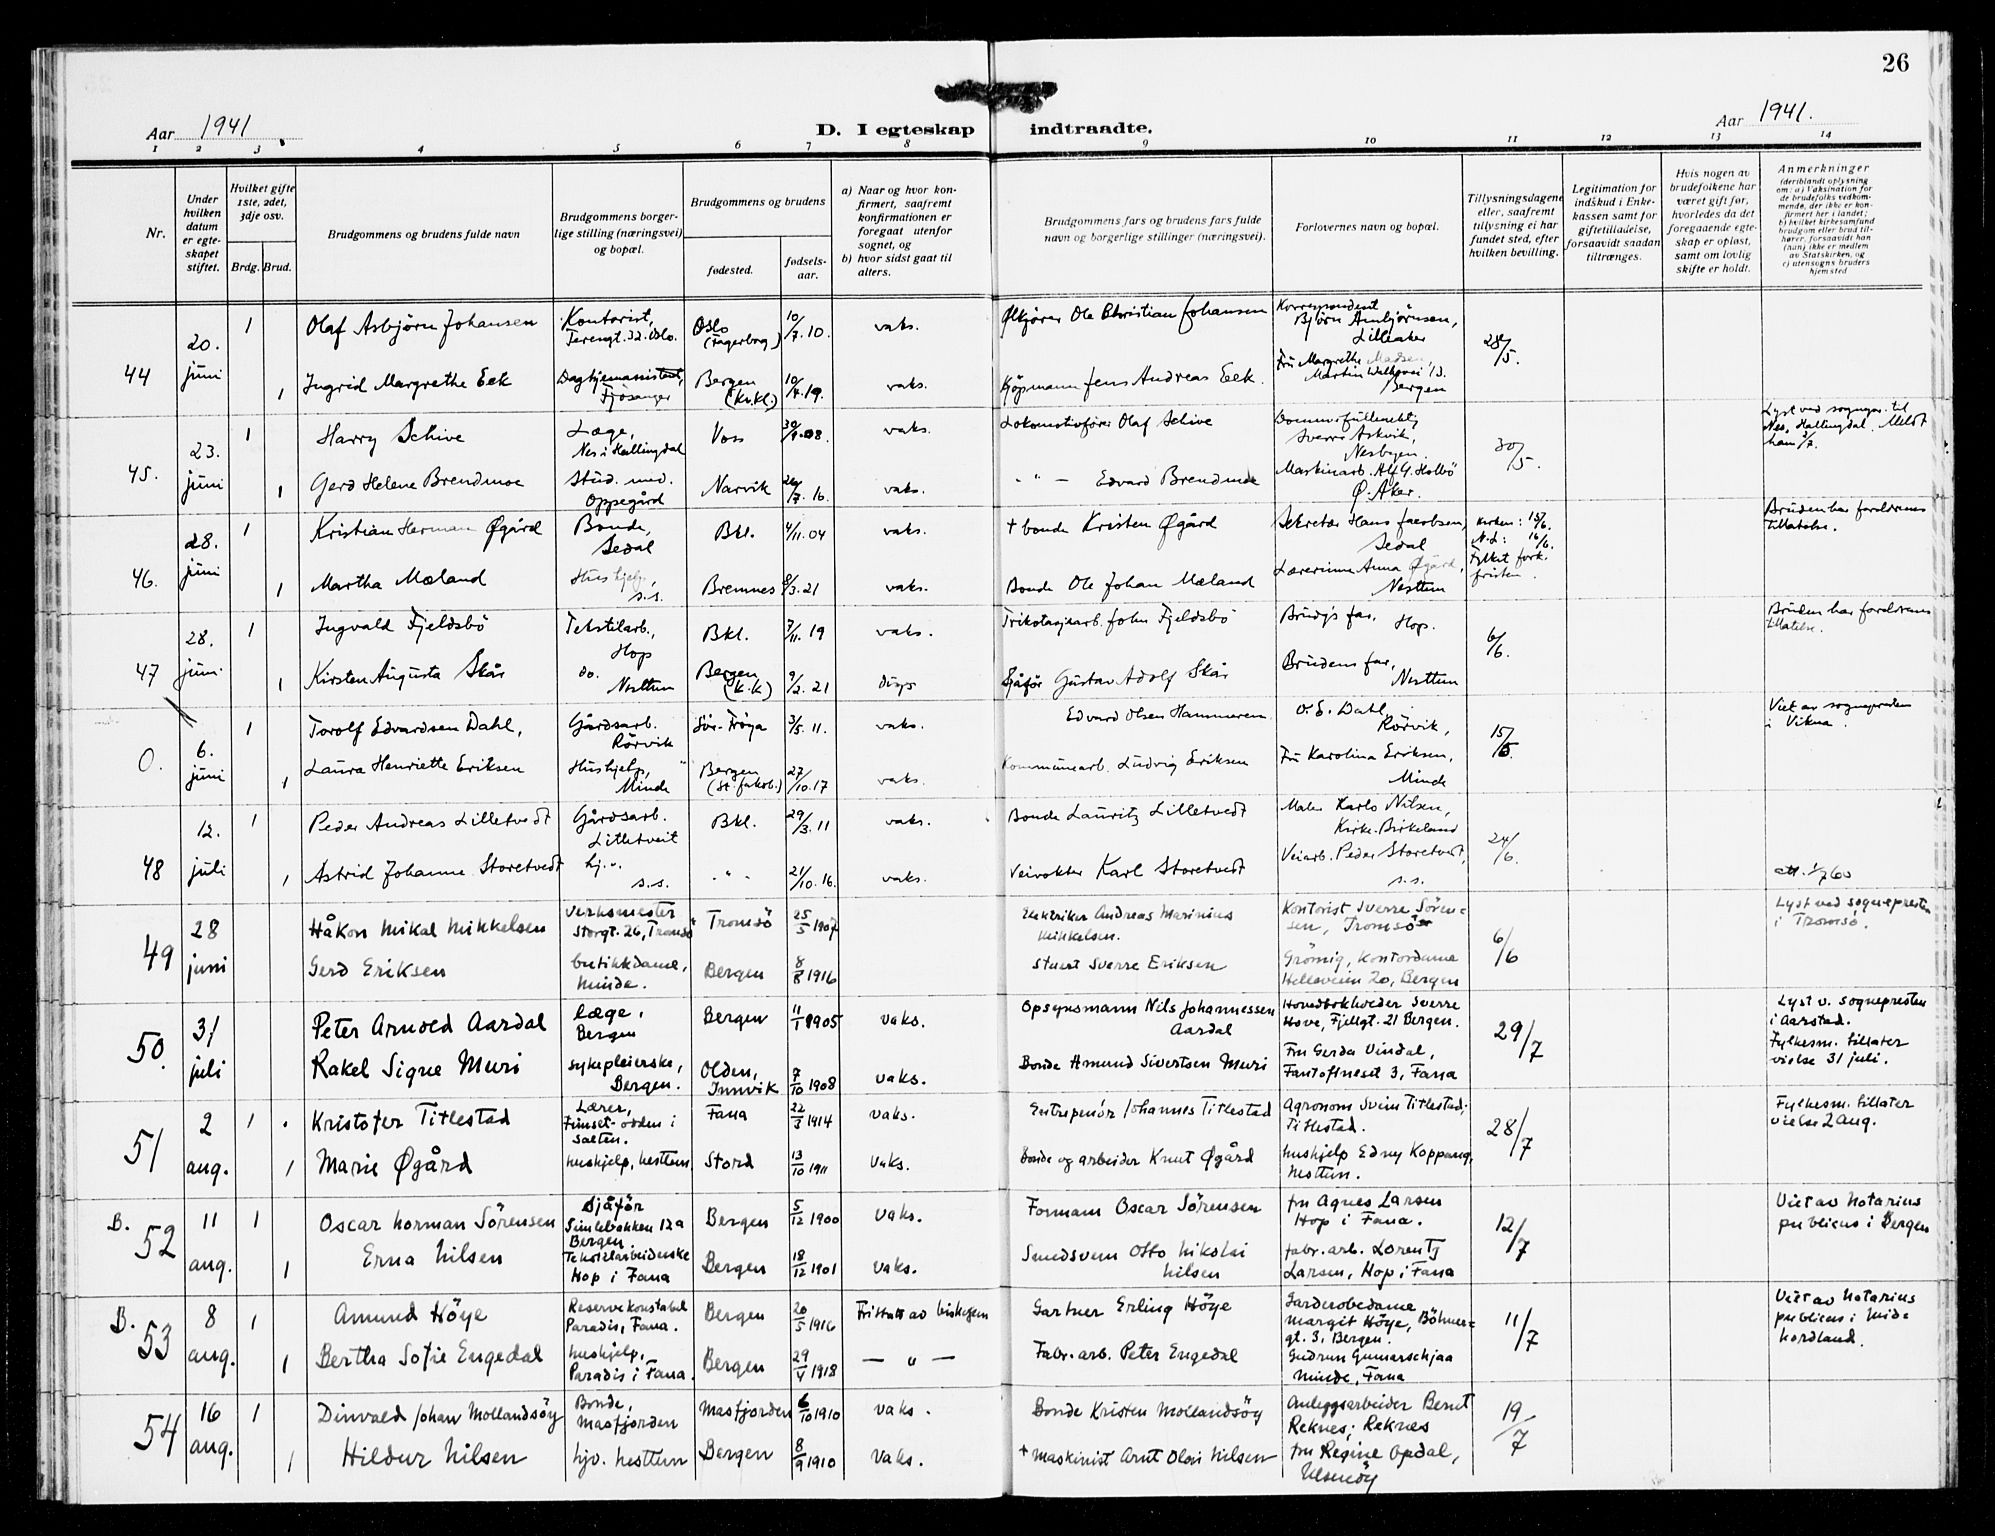 26
Aar 1941
D. I egteskap indtraadte.
Aar 1941.
1 2 3 4 5 6 7 8 9 10 11 12 13 14
Nr.
Under hvilken datum er egteskapet stiftet.
Hvilket gifte 1ste, 2det, 3dje osv.
Brdg. Brud.
Brudgommens og brudens fulde navn
Brudgommens borgerlige stilling (næringsvei) og bopæl.
Brudgommens og brudens
fødested.
fødselsaar.
a) Naar og hvor konfirmert, saafremt konfirmationen er foregaat utenfor sognet, og
b) hvor sidst gaat til alters.
Brudgommens fars og brudens fars fulde navn og borgerlige stillinger (næringsvei).
Forlovernes navn og bopæl.
Tillysningsdagene eller, saafremt tillysning ei har fundet sted, efter hvilken bevilling.
Legitimation for indskud i Enkekassen samt for giftetilladelse, forsaavidt saadan tiltrænges.
Hvis nogen av brudefolkene har været gift før, hvorledes da det foregaaende egteskap er opløst, samt om lovlig skifte er holdt.
Anmerkninger
(deriblandt oplysning om: a) Vaksination for de brudefolks vedkommende, der ikke er konfirmert her i landet; b) hvilket kirkesamfund brudgom eller brud tilhører, forsaavidt han (hun) ikke er medlem av Statskirken, og c) utensogns bruders hjemsted
44 20. juni 1 Olaf Asbjørn Johansen Kontorist, Terengt. 32. Oslo. Oslo (Fagerborg) 10/7.10 vaks. Ølkjører Ole Christian Johansen Korrespondent Björn Ambjörnsen, Lilleaker 28/5.
1 Ingrid Margrethe Eek Fjösanger Bergen (Kr.kl.) 10/4.19. vaks. Kjöpmann Jens Andreas Eek. Fru Margrethe Madsen, Bergen
45. 23. juni 1 Harry Schive Læge, Nes i Hallingdal Voss 30/9.08. vaks. Lokomotivförer Olaf Schive Sverre Askvik, Nesbyen. 30/5. Lyst ved sognepr. til Nes, Hallingdal. Meldt ham 3/7.
1 Gerd Helene Brendmoe Stud. med. Oppegård Narvik 26/7.16. vaks. - " - Edvard Brendmoe Maskinarb. Alf G. Holbö Ø. Aker.
46. 28. juni 1 Kristian Herman Øgård Bonde, Sedal Bkl. 4/11.04 vaks. + bonde Kristen Øgård Sekretær Hans Jacobsen, Sedal Kirken: 15/6. N.L: 16/6. Fylket fork. fristen. Bruden har foreldrenes tillatelse.
1 Martha Mæland Hushjelp, s.s. Bremnes 8/3.21 vaks. Bonde Ole Johan Mæland Lærerinne Anna Øgård, Nesttun
47 28. juni 1 Ingvald Fjeldsbö Tekstilarb., Hop Bkl. 7/11.19 vaks. Trikotasjearb. John Fjeldsbö Brudg's far, Hop. 6/6. Bruden har foreldrenes tillatelse.
1 Kirsten Augusta Skår do. Nesttun Bergen (K.K) 9/2.21 Sjåför Gustav Adolf Skår Brudens far, Nesttun
0. 6. juni 1 Torolf Edvardsen Dahl, Gårdsarb. Rörvik Sör-Fröya 3/5.11. vaks. Edvard Olsen Hammeren O.E. Dahl, Rörvik, 15/5. Viet av sognepresten i Vikna.
1 Laura Henriette Eriksen Hushjelp, Minde Bergen (St. Jakob.) 27/10.17 vaks. Kommunearb. Ludvig Eriksen Fru Karolina Eriksen, Minde
48 12. juli 1 Peder Andreas Lilletvedt Gårdsarb. Lilletveit Bkl. 29/3.11 vaks. Bonde Lauritz Lilletvedt Maler Karlo Nilsen, Kirke-Birkeland 24/6.
1 Astrid Johanne Storetvedt hj.". s.s. - " - 21/10.16. vaks. Veivokter Karl Storetvedt Veiarb. Peder Storetvedt, s.s. 1/7 60
49 28 juni Håkon Mikal Mikkelsen Verksmester Storgt. 26, Tromsö Tromsö 25/5 1907 Elektriker Andreas Marinius Mikkelsen. Kontorist Sverre Sörensen, Tromsö 6/6 Lyst ved sognepresten i Tromsö.
Gerd Eriksen butikkdame, Minde. Bergen 8/8 1916 Stuert Sverre Eriksen Grönnig, Kontordame Helleveien 20, Bergen
50. 31 juli Peter Arnold Aardal læge, Bergen Bergen 11/1 1905 vaks. Opsynsmann Nils Johannessen Aardal Hovedbokholder Sverre Hove, Fjellgt. 21 Bergen. 29/7 Lyst v. sognepresten i Aarstad. Fylkesm. tillater vielse 31 juli.
Rakel Signe Muri sykepleierske, Bergen. Olden, Innvik 7/10 1908 vaks. Bonde Amund Sivertsen Muri Fru Gerda Vindal, Fantoftneset 3, Fana
51 2 aug. 1 Kristofer Titlestad Lærer, Finset-odden i Salten. Fana 22/3 1914 vaks. Entreprenör Johannes Titlestad Agronom Svein Titlestad; Titlestad. 28/7 Fylkesm. tillater vielse 2 aug.
1 Marie Øgård hushjelp, Nesttun. Stord 13/10 1911 vaks. Bonde og arbeider Knut Øgård hushjelp Edny Koppang, Nesttun.
B. 52 11 aug. 1 Oscar Norman Sörensen Sjåför Simlebakken 12a Bergen Bergen 5/12 1900 vaks. Formann Oscar Sörensen fru Agnes Larsen Hop i Fana. 12/7 Viet av Notarius publicus i Bergen
1 Erna Nilsen Tekstilarbeiderske Hop i Fana Bergen 18/12 1901 vaks. Smedsvenn Otto Nikolai Nilsen fabr. arb. Lorentz Larsen, Hop i Fana
B. 53 8 aug. 1 Amund Höye Reservekonstabel Paradis, Fana. Bergen 20/5 1916 Fritatt av biskopen Gartner Erling Höye Garderobedame Margit Höye, Böhmergt. 3, Bergen. 11/7 Viet av Notarius publicus i Midthordland.
1 Bertha Sofie Engedal hushjelp, Paradis i Fana. Bergen 29/4 1918 — " — Fabr. arb. Peter Engedal Gudrun Gunnarschjaa Minde, Fana
54 16 aug. 1 Dinvald Johan Mollandsöy Bonde, Masfjorden Masfjorden 6/10 1910 vaks. Bonde Kristen Mollandsöy Anleggsarbeider Bernt Reknes; Reknes 19/7
1 Hildur Nilsen hjv. Nesttun Bergen 8/9 1910 vaks. + Maskinist Arnt Olai Nilsen fru Regine Opdal,